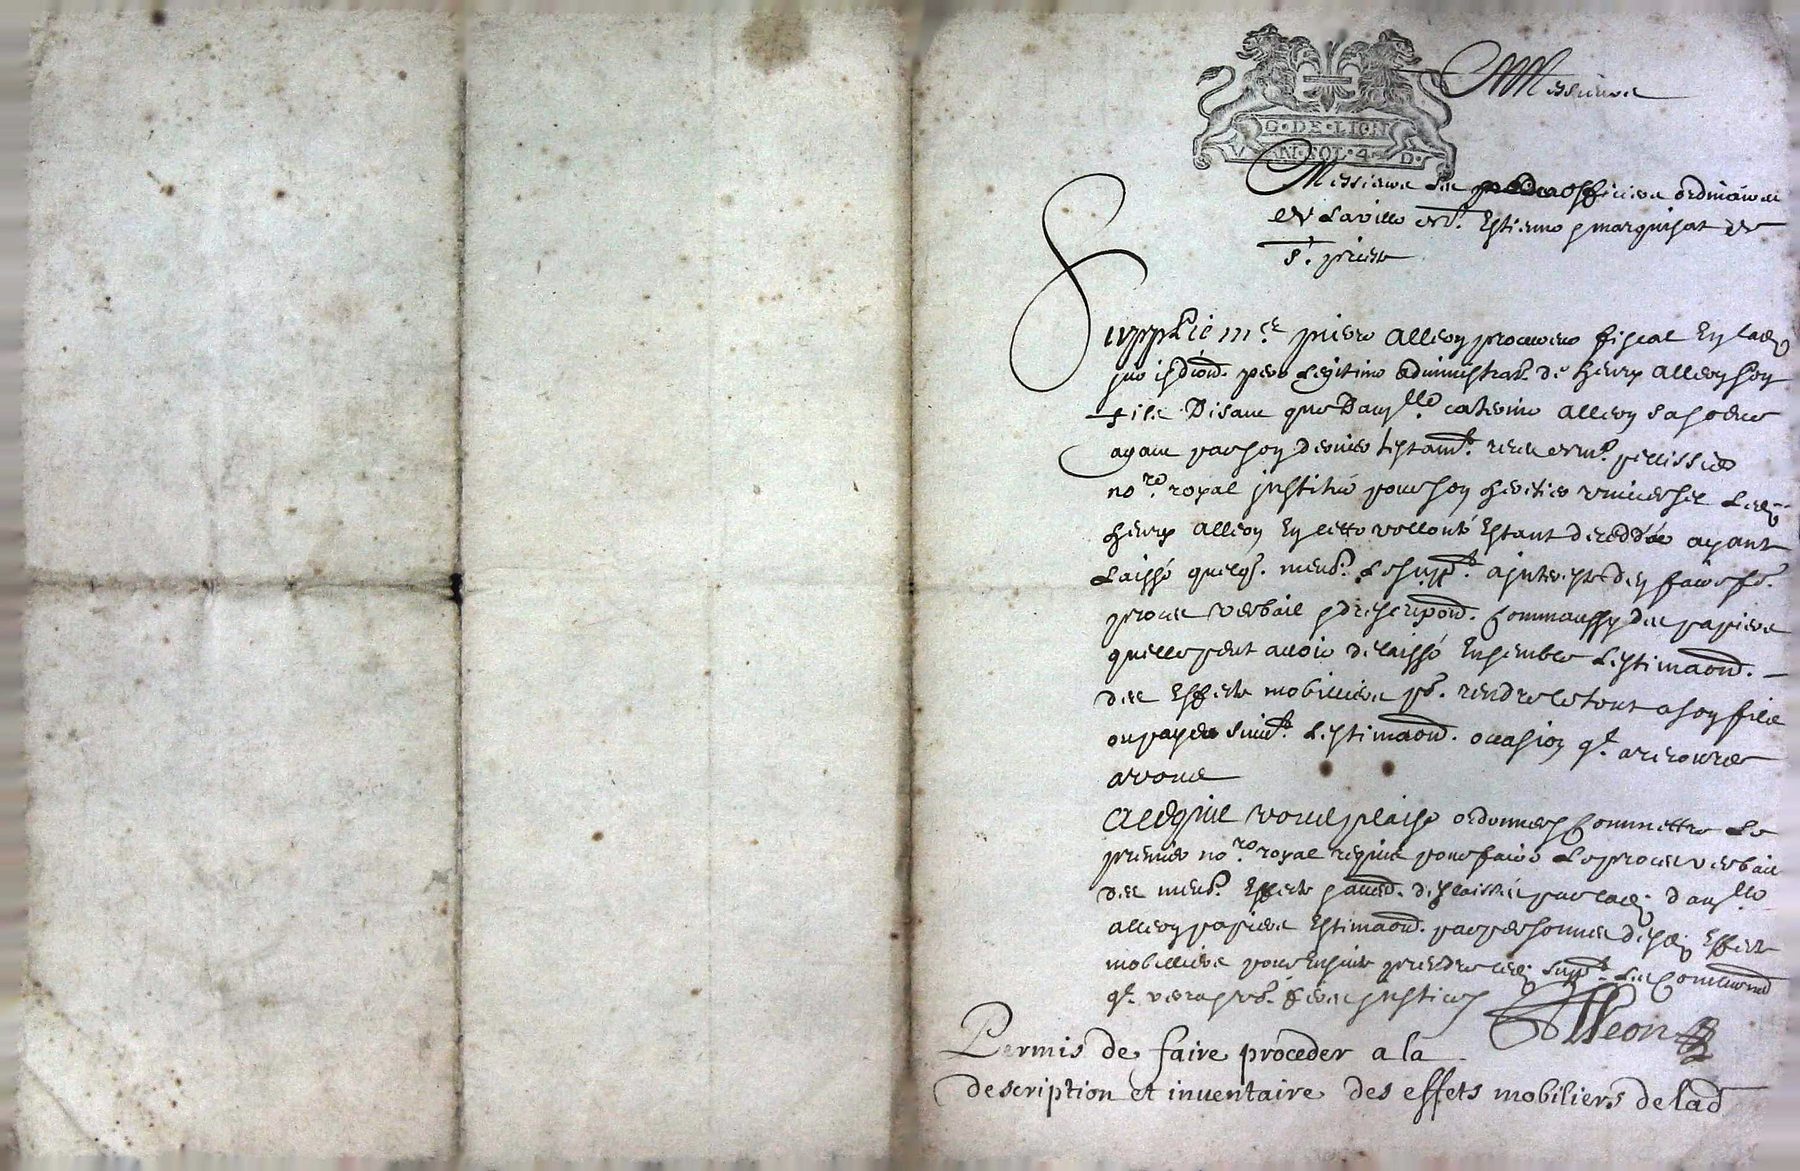 Messieurs
G·DE·LION
V AN·SOL·4·D·
Messieurs les officiers ordinaires
de la ville de St. Estienne & marquisat de
St. priest
Supplie me. pierre Alleon procureur fiscal en lad.
jurisdion. pere legitime administrat. de henry alleon son
fils Disant que Damlle. caterine alleon sa soeur
ayant par son dernier testamt. receu de me. pellissier
nore. royal institué pour son heritier universel led.
henry alleon en cette vollonté estant deceddée ayant
laissé quelqs. meub. le suppt. a interest den faire fe.
proces verbail & descripon. comm aussy des papiers
quelle peut avoir delaissé ensemble lestimaon.
des effects mobilliers pr. rendre le tout a son fils
ou payer suivt. lestimaon. occasion qt. a recours
a vous
A ce quil vous plaise ordonner & commettre le
premier nore. royal requis pour faire le proces verbail
des meub. effects delaissés par lad. damlle.
alleon papiers estimaon. par personnes desd. effects
mobilliers pour ensuite prendre led. suppt. les
qt. verra & fe. justice
Alleon
Permis de faire proceder a la
description et inventaire des effets mobiliers de lad